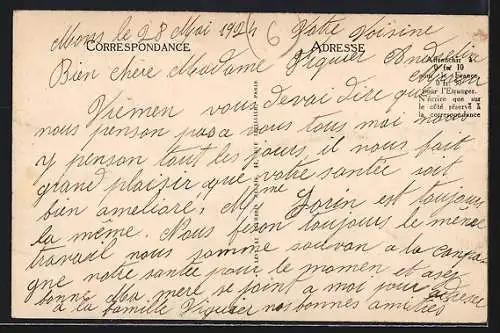 Mons le 28 Mai 1924
6 Votre Voisine
CORRESPONDANCE
ADRESSE
Bien chère Madame Viguier
Affranchir à
0 fur 10
pour la France
pour l'Etranger.
N'écrire que sur
le côté réservé à
la correspondance
Vrémen vous devai dire que
nous penson pas a vous tous mai nous
y penson tout les jours il nous fait
grand plaisir que votre santée soit
bien ameliore, Mme Lorin est toujours
la même. Nous feson toujours le même
travail nous somme sadvan a la compa
gne notre santée pour le momen et asez
bonne Ma mere se joint a moi pour
a la famille Viguier nos bonnes amitiés